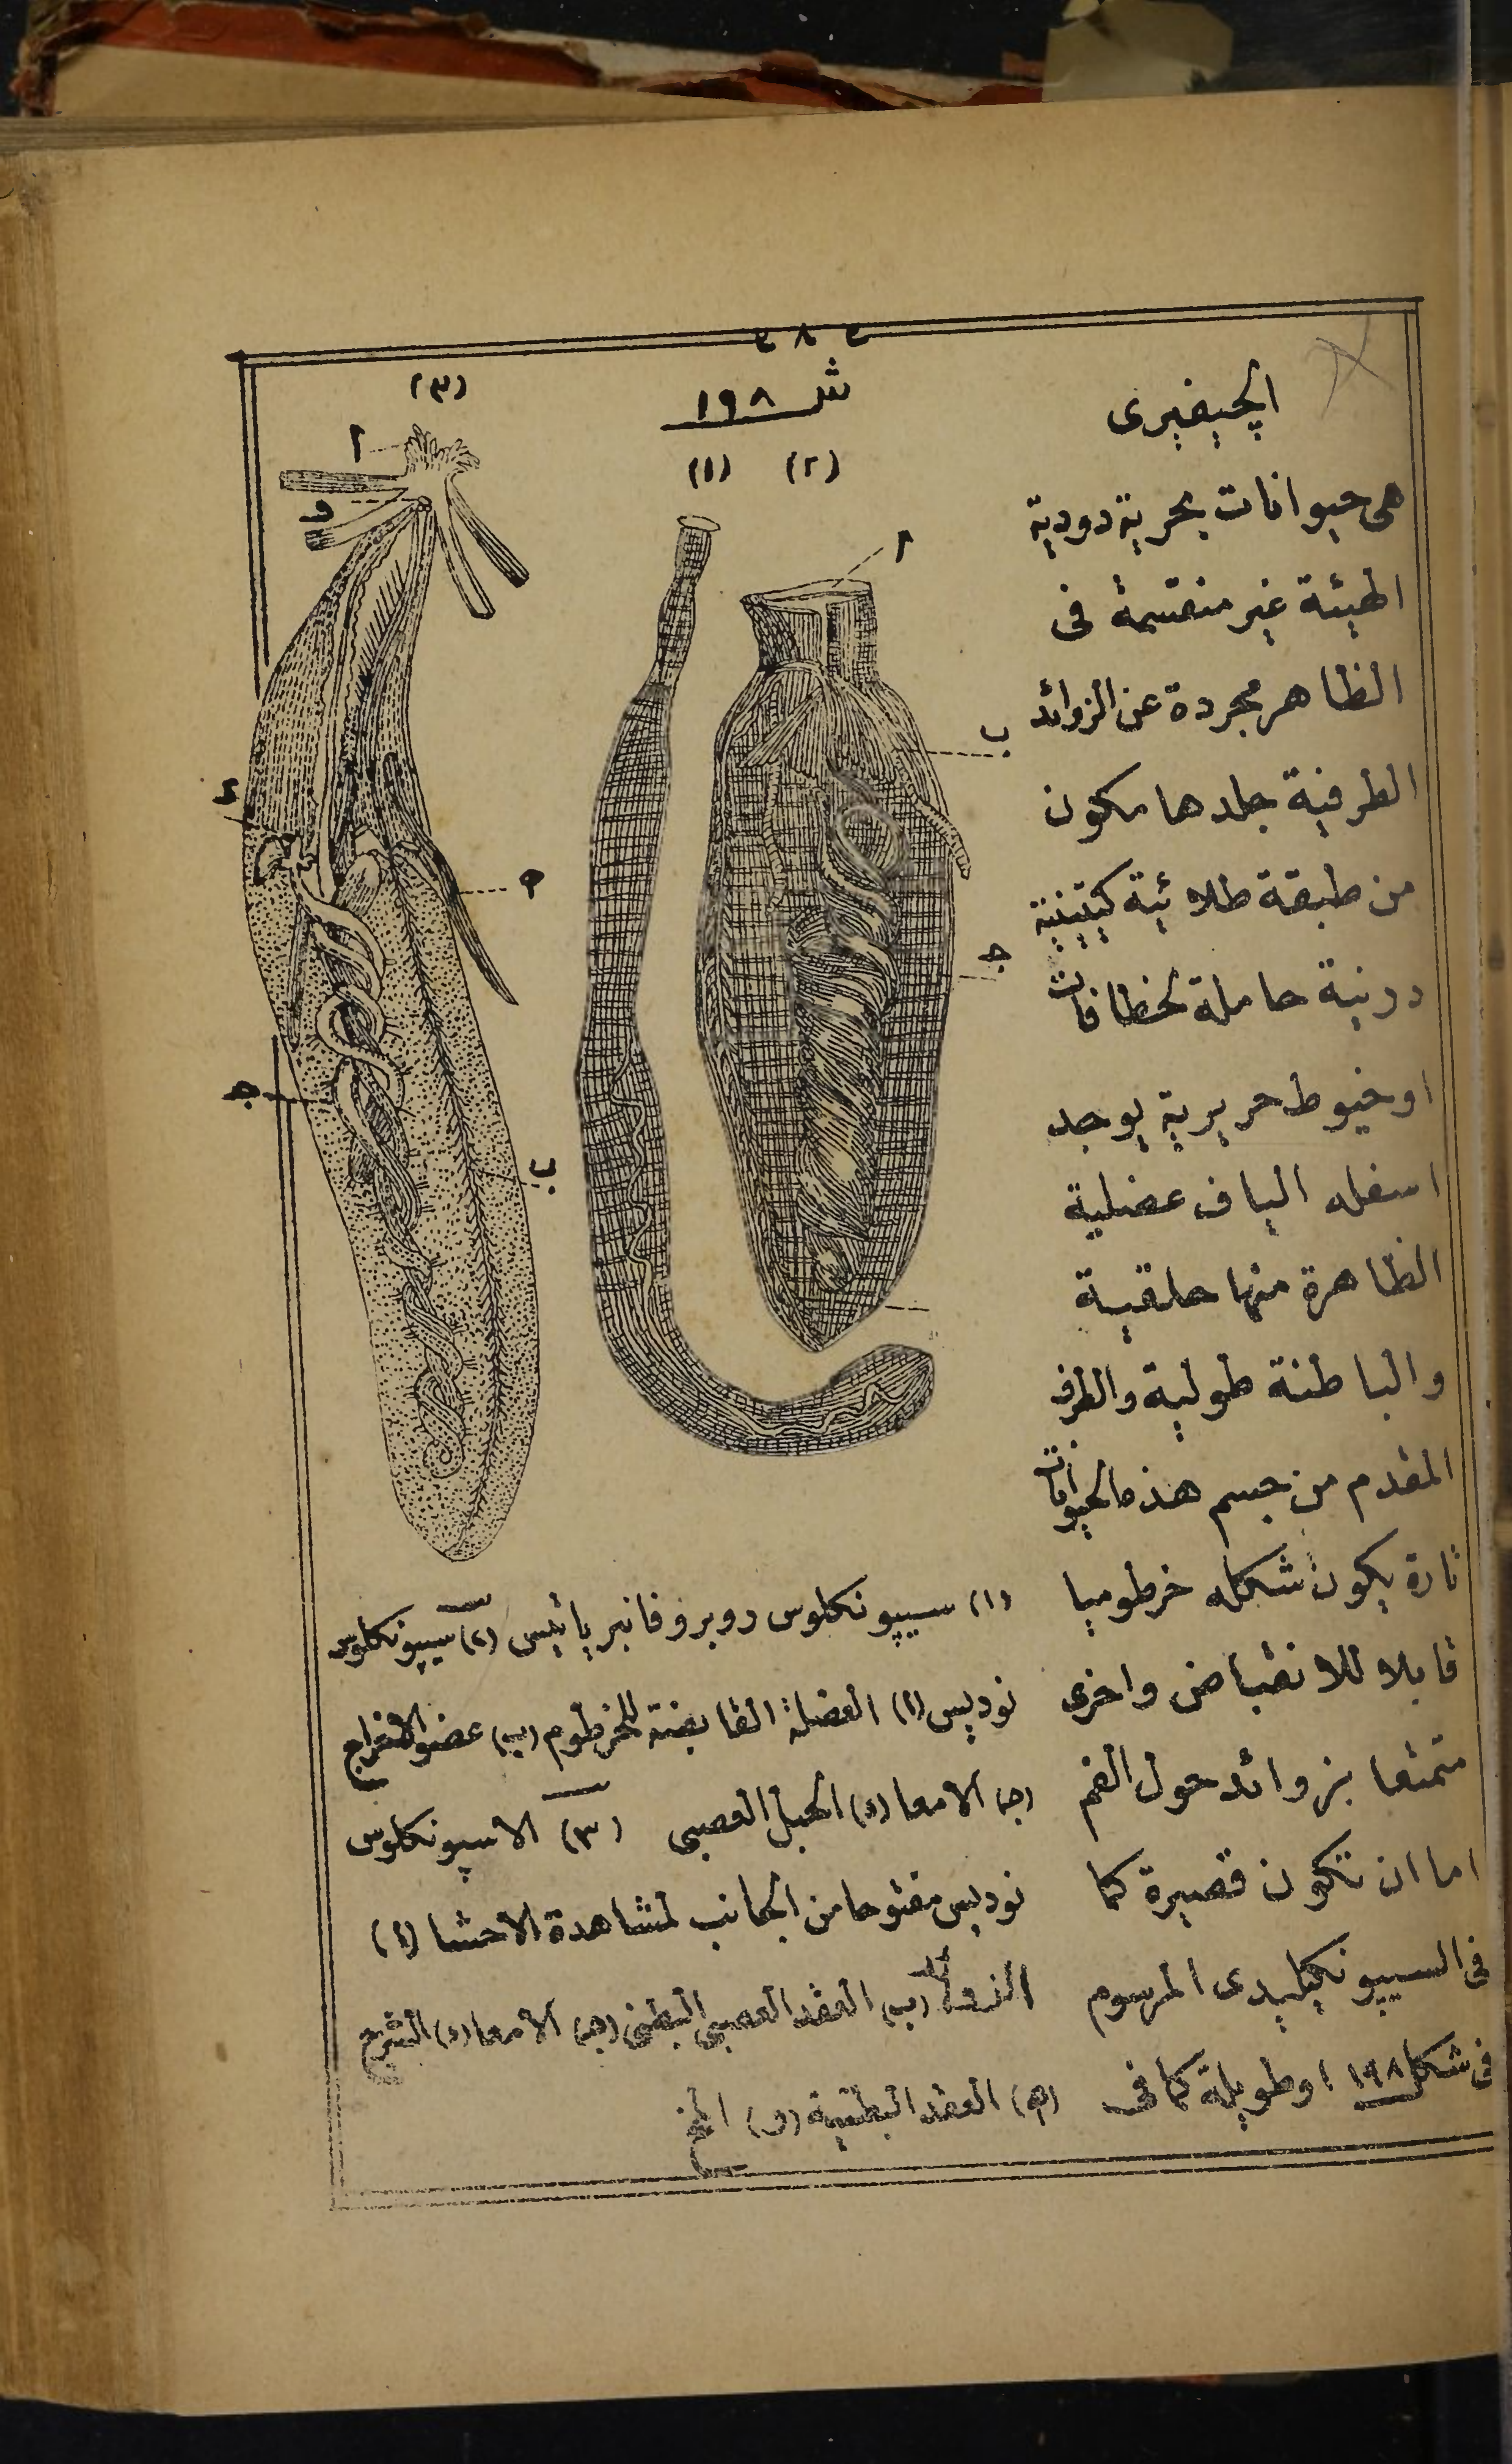 ٢٨٢
الچيفيرى
هى حيوانات بحرية دودية
الهيئة غير منقسمة فى
الظاهر مجردة عن الزوائد
الطرفية جلدها مكون
من طبقة طلائية كيتينية
درنية حاملة لخطافات
او خيوط حريرية يوجد
اسفله الياف عضلية
الظاهرة منها حلقية
والباطنة طولية والطرف
المقدم من جسم هذه الحيوانات
تارة يكون شكله خرطوميا
قابلا للانقباض واخرى
متمتعا بزوائد حول الفم
اما ان تكون قصيرة كما
فى السيپونكيليدى المرسوم
فى شكل ١٩٨ اوطويلة كما فى
شـ ١٩٨
(٣)
(١) (٢)
ا
و
ا
ب
د
ه
جـ
جـ
ب
(١) سيپونكلوس روبروفانبرياتيس (٢) سيپونكلوس
نوديس (ا) العضلة القابضة للخرطوم (ب) عضو الافراج
(جـ) الامعا (د) الحبل العصبى (٣) الاسپونكلوس
نوديس مفتوحا من الجانب لمشاهدة الاحشا (ا)
الزوائد (ب) العقد العصبى البطنى (جـ) الامعا (د) الشرج
(ه) العقد البطنية (و) المخ